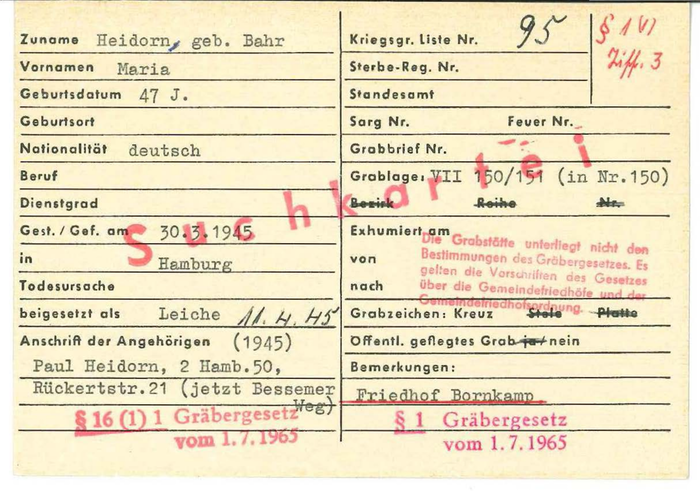 Zuname Heidorn, geb. Bahr
Vornamen Maria
Geburtsdatum 47 J.
Geburtsort
Nationalität deutsch
Beruf
Dienstgrad
Gest. / Gef. am 30.3.1945
in Hamburg
Todesursache
beigesetzt als Leiche 11.4.45
Anschrift der Angehörigen (1945)
Paul Heidorn, 2 Hamb.50,
Rückertstr.21 (jetzt Bessemer
Weg)
§ 16 (1) 1 Gräbergesetz
vom 1.7.1965
Kriegsgr. Liste Nr. 95
§ 1 VI
Ziff. 3
Sterbe-Reg. Nr.
Standesamt
Sarg Nr. Feuer Nr.
Grabbrief Nr.
Grablage: VII 150/151 (in Nr.150)
Bezirk Reihe Nr.
Suchkartei
Exhumiert am
von
nach
Die Grabstätte unterliegt nicht den
Bestimmungen des Gräbergesetzes. Es
gelten die Vorschriften des Gesetzes
über die Gemeindefriedhöfe und der
Gemeindefriedhofsordnung.
Grabzeichen: Kreuz Stele Platte
Öffentl. gepflegtes Grab ja / nein
Bemerkungen:
Friedhof Bornkamp
§ 1 Gräbergesetz
vom 1.7.1965